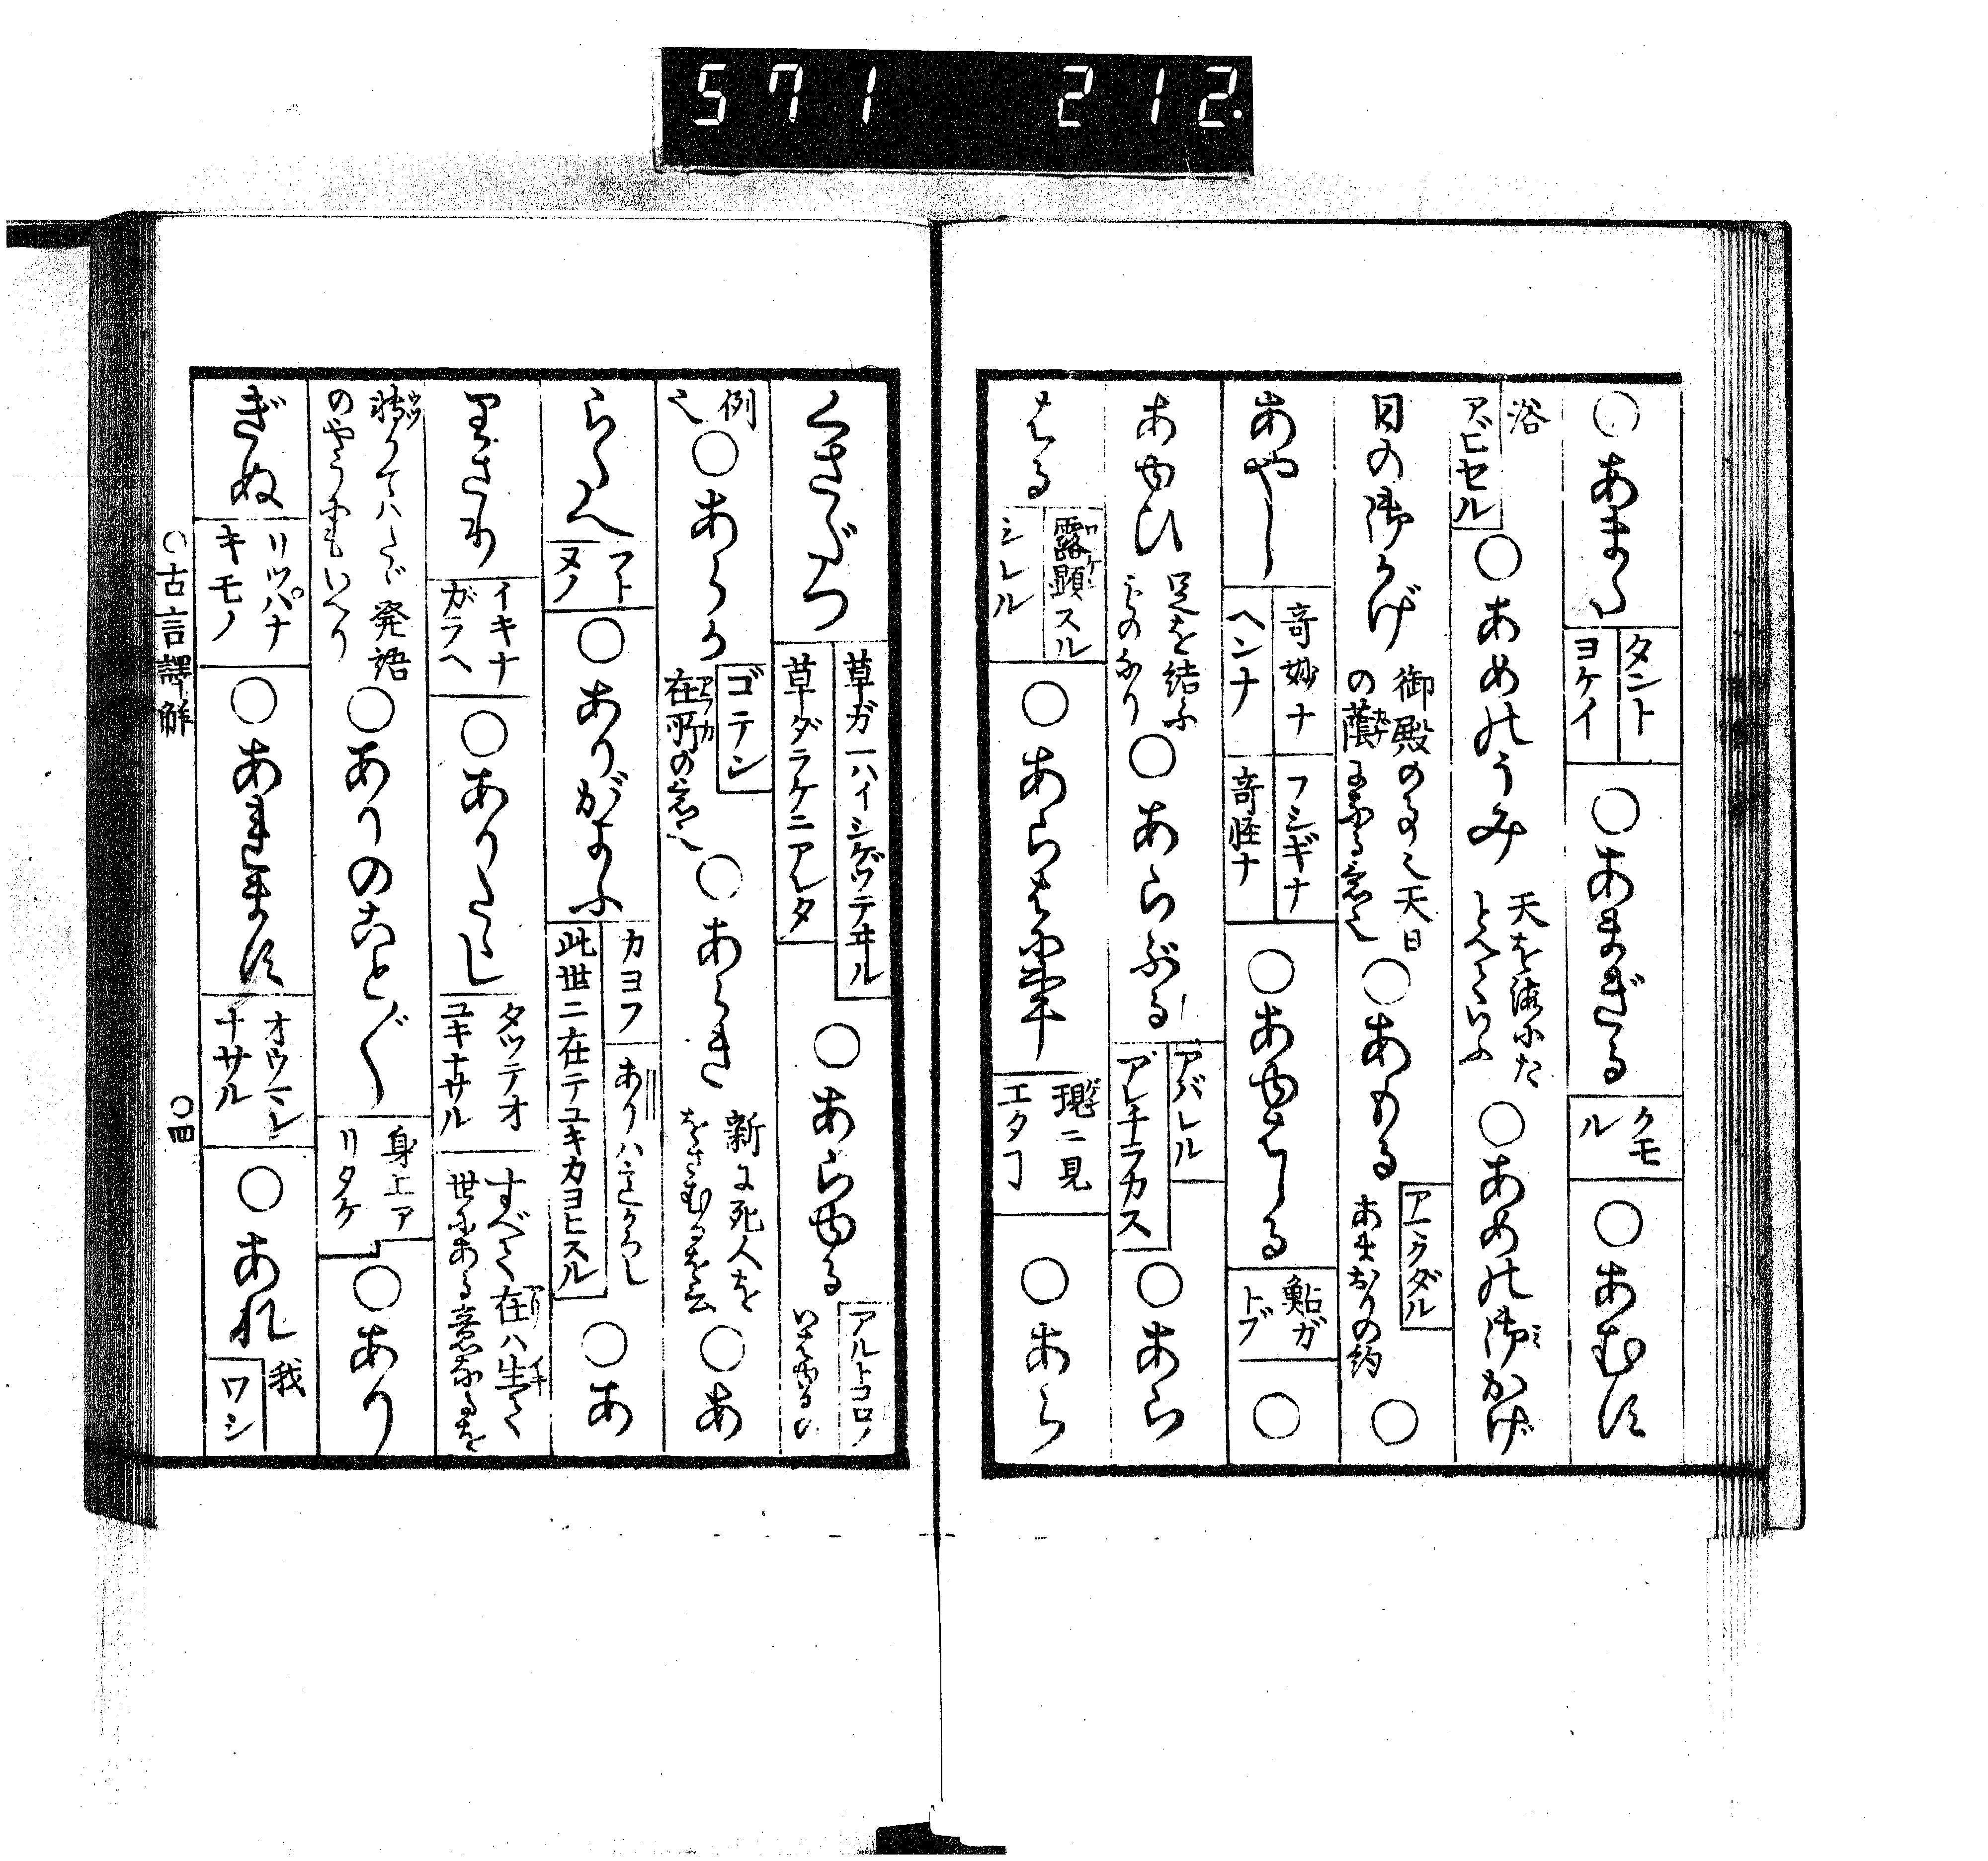 571 212.
○あまた タント ヨケイ ○あまぎる クモル ○あむす
浴 アビセル ○あめのうみ 天を海にたとへていふ ○あめの御かげ
日の御かげ 御殿の事也天日の蔭になる意也 ○あもる アマクダル あまおりの約 ○
あやし 奇妙ナ ヘンナ フシギナ 奇怪ナ ○あゆはしる 鮎ガトブ ○
あゆひ 足を結ふものなり ○あらぶる アバレル アレチラカス ○あら
はる 露顕スル シレル ○あらはに 現ニ見エタ ○あら
くさだつ 草ガ一ハイシゲツテヰル 草ダラケニアレタ ○あらゆる アルトコロノ いはゆるの
例也 ○あらか ゴテン 在所の意也 ○あらき 新に死人ををさむるを云 ○あ
らたへ フト ヌノ ○ありがよふ カヨフ ありハ 此世ニ在テユキカヨヒスル ○あ
りさり イキナガラヘ ○ありたたし タツテオユキナサル すべて在ハ生て世にある意なるを
転りてハたゞ発語のやうにもいへり ○ありのことごと 身上アリタケ ○あり
ぎぬ リツパナキモノ ○あれます オウマレナサル ○あれ 我 ワシ
○古言譯解 ○四